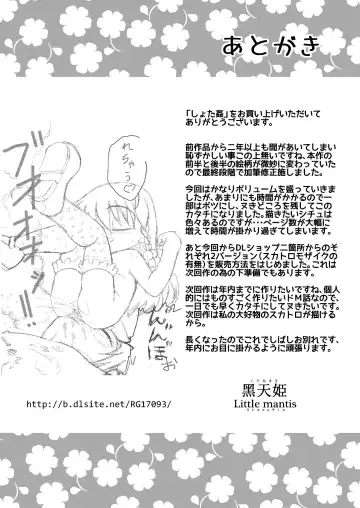 あとがき
「しょた姦」をお買い上げいただいて
ありがとうございます。
前作品から二年以上も間があいてしまい
恥ずかしい事この上無いですね、本作の
前半と後半の絵柄が微妙に変わっていた
ので最終段階で加筆修正施しました。
今回はかなりボリュームを盛っていきま
したが、あまりにも時間がかかるので一
部はボツにし、ヌきどころを残してこの
カタチになりました。描きたいシチュは
色々あるのですが・・・ページ数が大幅に
増えて時間が掛かり過ぎてしまいます。
あと今回からDLショップ二箇所からのそ
れぞれ2バージョン（スカトロモザイクの
有無）を販売方法をはじめました。これは
次回作の為の下準備でもあります。
次回作は年内までに作りたいですね、個人
的にはものすごく作りたいドM話なので、
一日でも早くカタチにしてヌきたいです。
次回作は私の大好物のスカトロが描ける
から。
長くなったのでこれでしばしお別れです、
年内にお目に掛かるように頑張ります。
黑天姫
Little mantis
http://b.dlsite.net/RG17093/
れちゃう♡